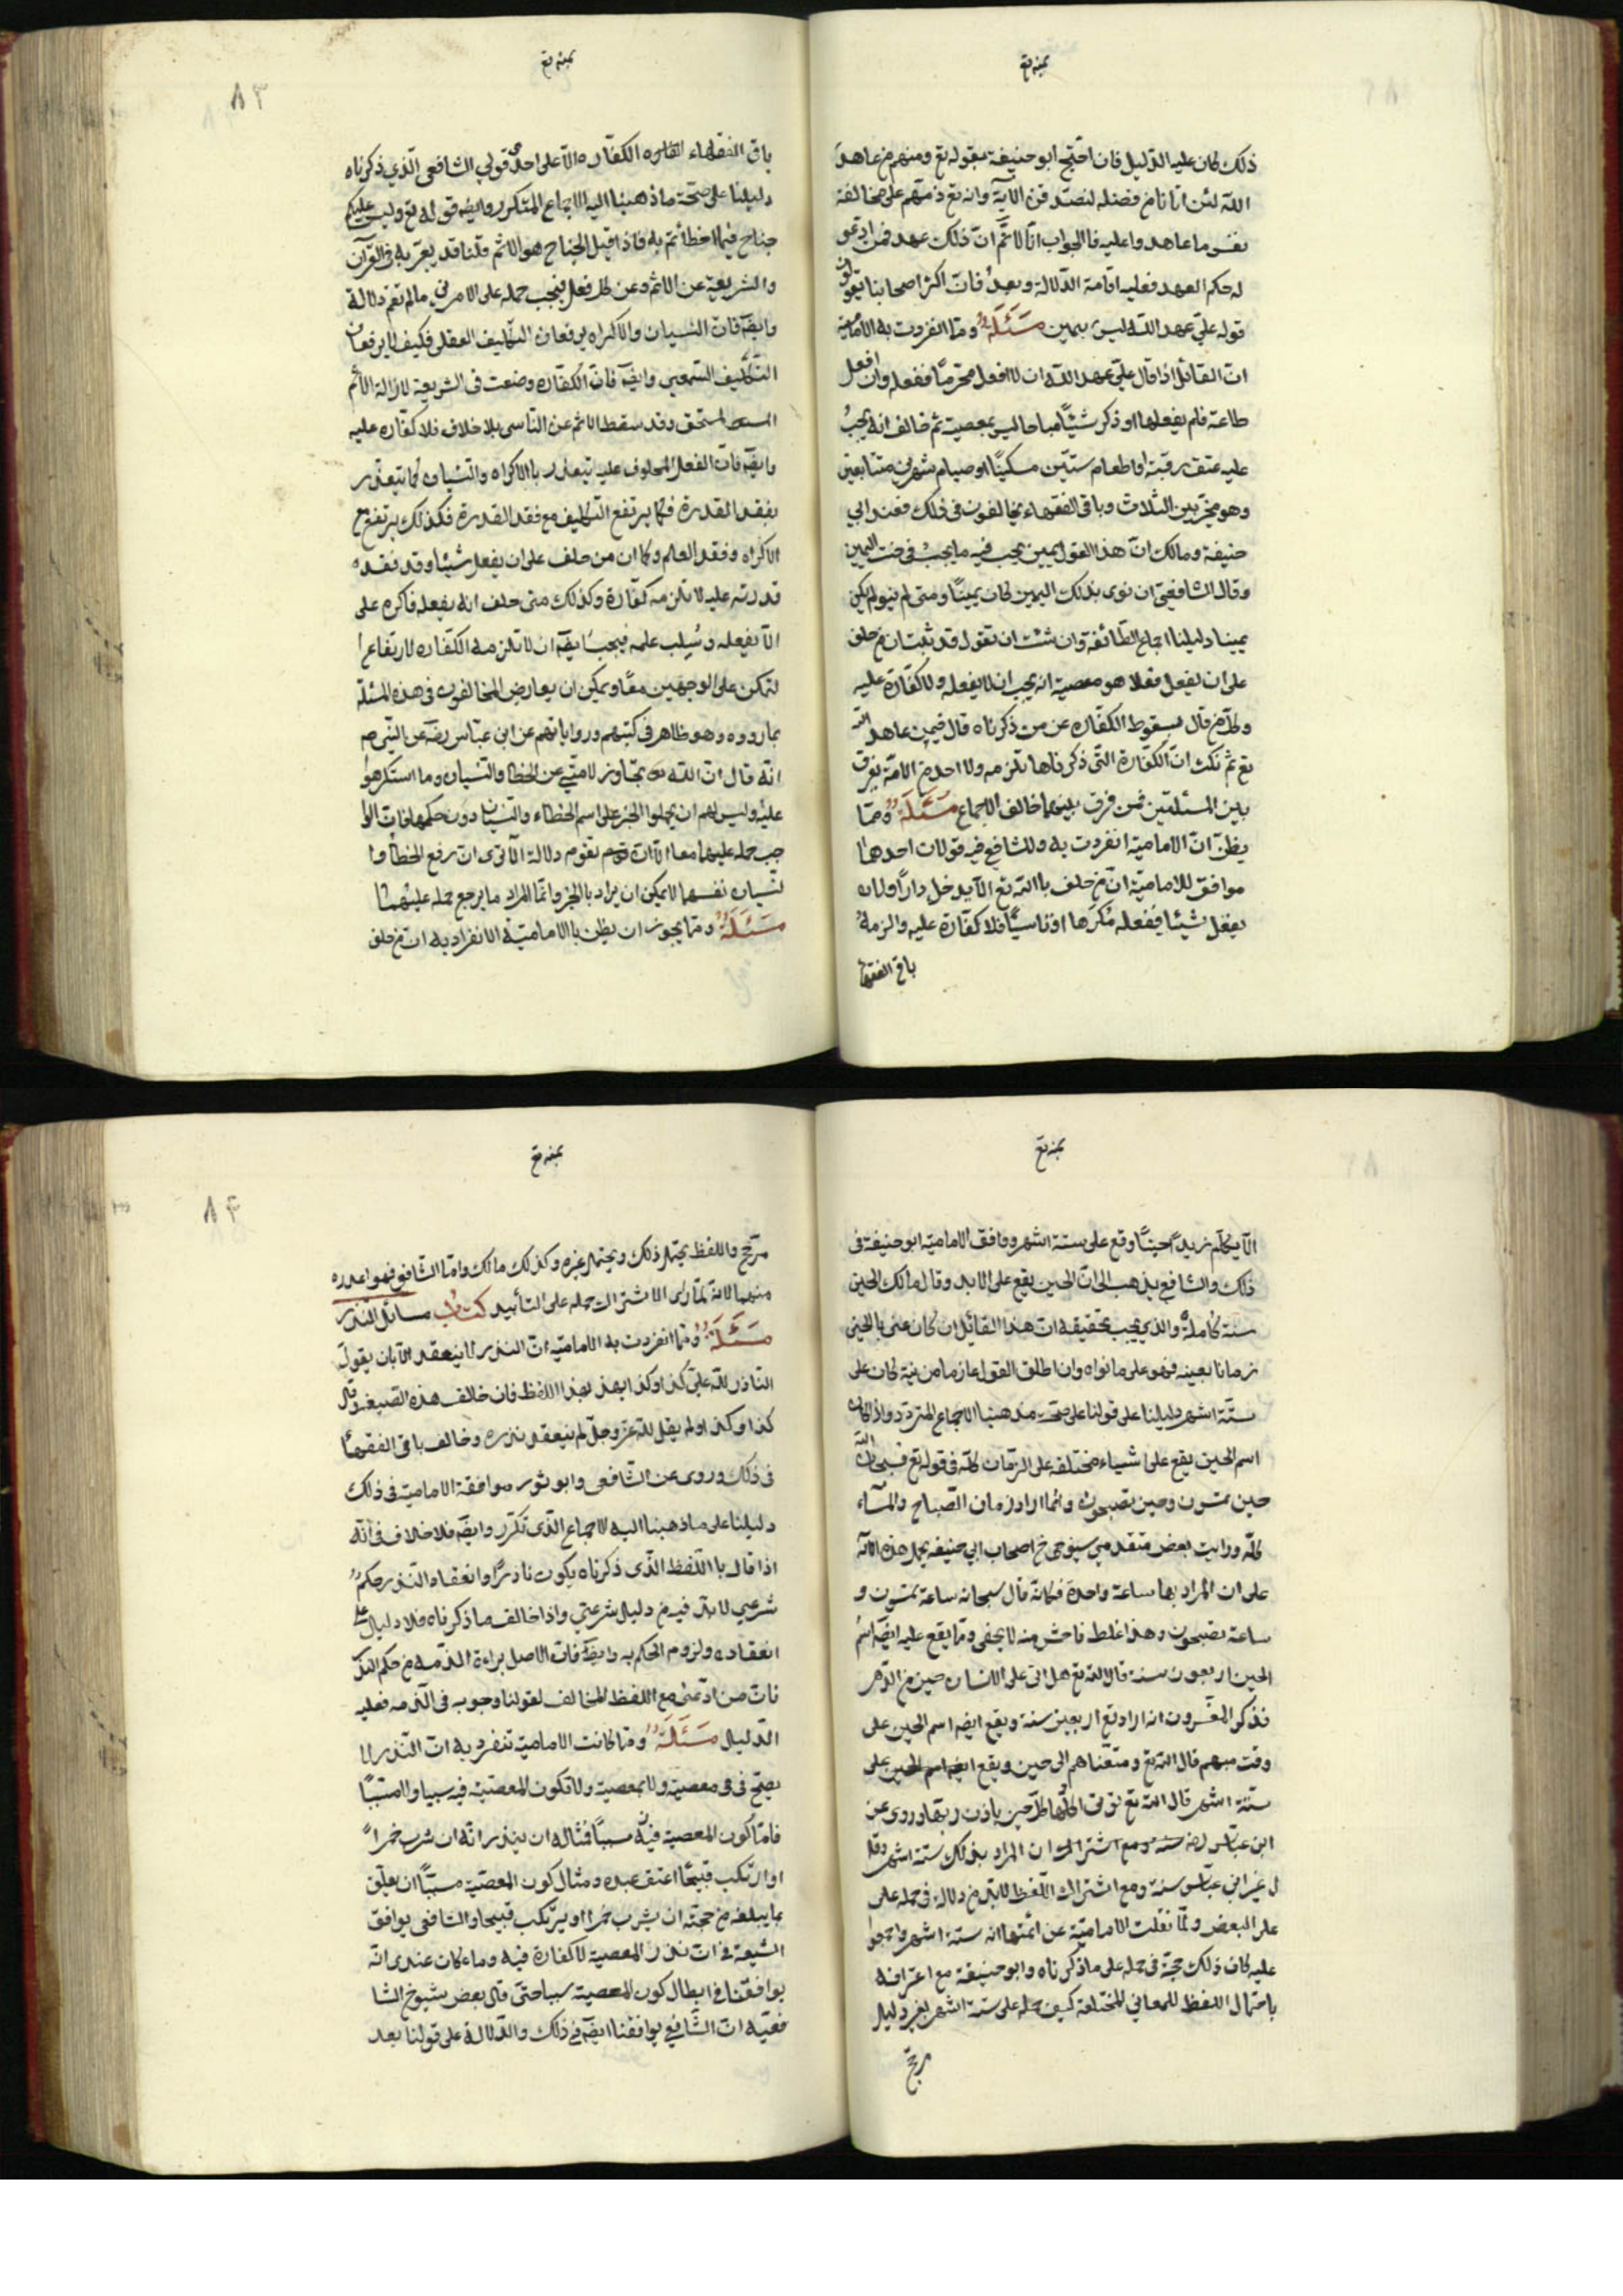 يمينه تع
ذلك كان عليه الدليل فان احتج ابو حنيفة بقوله تع ومنهم من عاهد
الله لئن اتانا من فضله لنصدقن الآية وانه تع ذمهم على مخالفة
نفس ما عاهدوا عليه فالجواب انا لانم ان ذلك عهد فمن ادعى
له حكم العهد فعليه اقامة الدلالة وبعد فان اكثر اصحابنا يقولون
قوله علي عهد الله ليس بيمين مسئلة ومما انفردت به الامامية
ان القائل اذا قال علي عهد الله ان لا افعل محرما ففعله وان افعل
طاعة فلم يفعلها او ذكر شيئا مباحا ليس بمعصية ثم خالف انه يجب
عليه عتق رقبة او اطعام ستين مسكينا او صيام شهرين متتابعين
وهو مخير بين الثلاث وباقى الفقهاء يخالفون فى ذلك فعند ابي
حنيفة ومالك ان هذا القول يمين يجب فيه ما يجب في حنث اليمين
وقال الشافعي ان نوى بذلك اليمين كان يمينا ومتى لم ينو لم يكن
يمينا دليلنا اجماع الطائفة وان شئت ان تقول قد ثبت ان من حلف
على ان يفعل فعلا هو معصية انه يجب ان لا يفعله ولا كفارة عليه
وكل من قال بسقوط الكفاره عن من ذكرناه قال فيمن عاهد الله
تع ثم نكث ان الكفارة التي ذكرناها تلزمه ولا احد من الامة يفرق
بين المسئلتين فمن فرق بينهما خالف الاجماع مسئلة ومما
يظن ان الامامية انفردت به وللشافعي فيه قولان احدهما
موافق للامامية ان من حلف بالله تع الا يدخل دارا ولا ان
يفعل شيئا ففعله مكرها او ناسيا فلا كفارة عليه والزمه
باقي الفقهاء
يمينه تع
٨٣
باقى الفقهاء الكفاره الا على احد قولي الشافعي الذي ذكرناه
دليلنا على صحة ما ذهبنا اليه الاجماع المتكرر وايضه قوله تع وليس عليكم
جناح فيما اخطأتم به فاذا قيل الجناح هو الاثم قلنا قد يعبر به في القرآن
والشريعة عن الاثم وعن كل فعل فيجب حمله على الامرين ما لم تقم دلالة
وايضه فان النسيان والاكراه يرفعان التكليف العقلي فكيف لا يرفعان
التكليف السمعي وايضه فان الكفاره وضعت فى الشريعة لازالة الاثم
المستحق وقد سقط الاثم عن الناسي بلا خلاف فلا كفاره عليه
وايضه فان الفعل المحلوف عليه يتعذر بالاكراه والنسيان كما يتعذر
بفقد القدرة فكما يرتفع التكليف مع فقد القدرة فكذلك يرتفع مع
الاكراه وفقد العلم وكما ان من حلف على ان يفعل شيئا وقد فقد
قدرته عليه لا تلزمه كفارة وكذلك متى حلف انه يفعله فاكره على
الا يفعله وسلب علمه فيجب ايضه ان لا تلزمه الكفاره لارتفاع ا
لتمكن على الوجهين معا ويمكن ان يعارض المخالفون فى هذه المسئلة
بما رووه وهو ظاهر في كتبهم ورواياتهم عن ابن عباس رضه عن النبي صم
انه قال ان الله تجاوز لامتي عن الخطا والنسيان وما استكرهوا
عليه وليس لهم ان يحملوا الخبر على اسم الخطاء والنسيان دون حكمهما فان الوا
جب حمله عليهما معا الا ان تقوم دلالة الا ترى ان رفع الخطأ وا
لنسيان نفسهما لا يمكن ان يراد بالخبر وانما المراد ما يرجع حمله عليهما
مسئلة ومما يجوز ان يظن بالامامية الانفراد به ان من حلف
يمينه تع
الا يكلم زيدا حينا وقع على ستة اشهر ووافق الامامية ابو حنيفة فى
ذلك والشافعي يذهب الى ان الحين يقع على الابد وقال مالك الحين
سنة كاملة والذي يجب تحقيقه ان هذا القائل ان كان عنى بالحين
زمانا بعينه فهو على ما نواه وان اطلق القول عاريا من نية كان على
ستة اشهر دليلنا على قولنا على صحة مذهبنا الاجماع المتردد واذا كان
اسم الحين يقع على اشياء مختلفه على الزمان كله فى قوله تع فسبحان الله
حين تمسون وحين تصبحون وانما اراد زمان الصباح والمساء
كله ورايت بعض متقدمي شيوخي من اصحاب ابي حنيفه يحمل هذه الآية
على ان المراد بها ساعة واحدة فكانه قال سبحانه ساعة تمسون و
ساعة تصبحون وهذا غلط فاحش منه لا يخفى ومما يقع عليه ايضه اسم
الحين اربعون سنة قال الله تع هل اتى على الانسان حين من الدهر
فذكر المفسرون انه اراد تع اربعين سنة ويقع ايضه اسم الحين على
وقت مبهم قال الله تع ومتعناهم الى حين ويقع ايضه اسم الحين على
ستة اشهر قال الله تع تؤتى اكلها كل حين باذن ربها وروى عن
ابن عباس رضه ان المراد بذلك ستة اشهر وقا
ل غير ابن عباس سنة ومع اشتراك اللفظ لابد من دلالة فى حمله على
على البعض ولما نقلت الامامية عن ائمتها انه ستة اشهر واجمعوا
عليه كان ذلك حجة فى حمله على ما ذكرناه وابو حنيفة مع اعترافه
باحتمال اللفظ للمعاني المختلفة كيف حمله على ستة اشهر بغير دليل
مرجح
يمينه تع
٨٤
مرجح واللفظ يحتمل ذلك ويحتمل غيره وكذلك مالك واما الشافعي فهو اعذر
منهما لانه لما راى الاشتراك حمله على التأبيد كتاب مسائل النذر
مسئلة ومما انفردت به الامامية ان النذر لا ينعقد الا بان يقول
الناذر لله علي كذا وكذا بهذا اللفظ فان خالف هذه الصيغة وقال
كذا وكذا ولم يقل لله عز وجل لم ينعقد نذره وخالف باقى الفقهاء
فى ذلك وروى عن الشافعي وابو ثور موافقة الامامية فى ذلك
دليلنا على ما ذهبنا اليه الاجماع الذي تكرر وايضه فلا خلاف في انه
اذا قال باللفظ الذي ذكرناه يكون ناذرا وانعقاد النذر حكم
شرعي لابد فيه من دليل شرعي واذا خالف ما ذكرناه فلا دليل على
انعقاده ولزوم الحكم به وايضه فان الاصل براءة الذمه من حكم النذر
فان من ادعى مع اللفظ المخالف لقولنا وجوبه فى الذمه فعليه
الدليل مسئلة ومما كانت الامامية تنفرد به ان النذر لا
يصح فى معصية ولا بمعصية ولا تكون المعصية فيه سببا ولا مسببا
فاما كون المعصية فيه سببا فمثاله ان ينذر انه ان شرب خمرا
او ارتكب قبيحا اعتق عبده ومثال كون المعصية مسببا ان يعلق
بما يبلغه من حجته ان يشرب خمرا او يرتكب قبيحا والشافعي يوافق
الشيعة في ان نذر المعصية لا كفارة فيه وما كان عندي انه
يوافقنا في ابطال كون المعصية سببا حتى قال بعض شيوخ الشا
فعية ان الشافعي يوافقنا ايضه في ذلك والدلالة على قولنا بعد